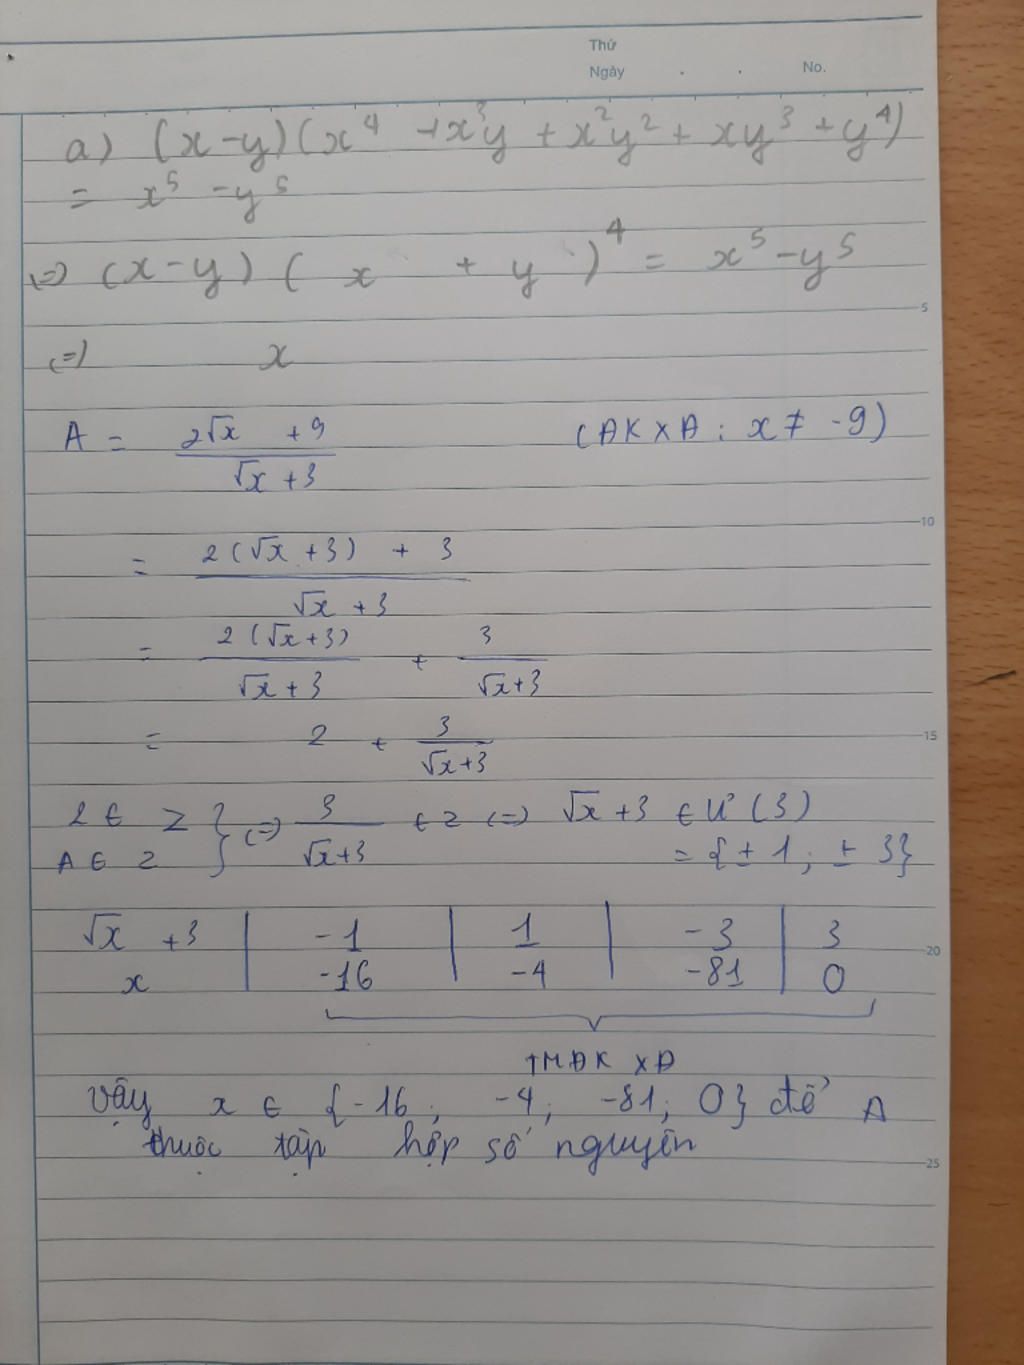 Thứ
Ngày . . No.
a) (x-y)(x⁴ +x³y + x²y² + xy³ +y⁴)
= x⁵ -y⁵
(=) (x-y) ( x + y )⁴ = x⁵-y⁵
5
(=) x
A = (2√x +9)/(√x +3) (ĐKXĐ : x ≠ -9)
10
= (2(√x +3) + 3)/(√x +3)
= (2(√x+3))/(√x +3) + 3/(√x+3)
= 2 + 3/(√x+3)
15
2 ∈ Z } (=) 3/(√x+3) ∈ Z (=) √x +3 ∈ Ư (3)
A ∈ Z } = {± 1 ; ± 3}
√x +3 | -1 | 1 | -3 | 3
20
x | -16 | -4 | -81 | 0
TMĐK XĐ
Vậy x ∈ {-16 ; -4 ; -81 ; 0} để A
thuộc tập hợp số nguyên
25